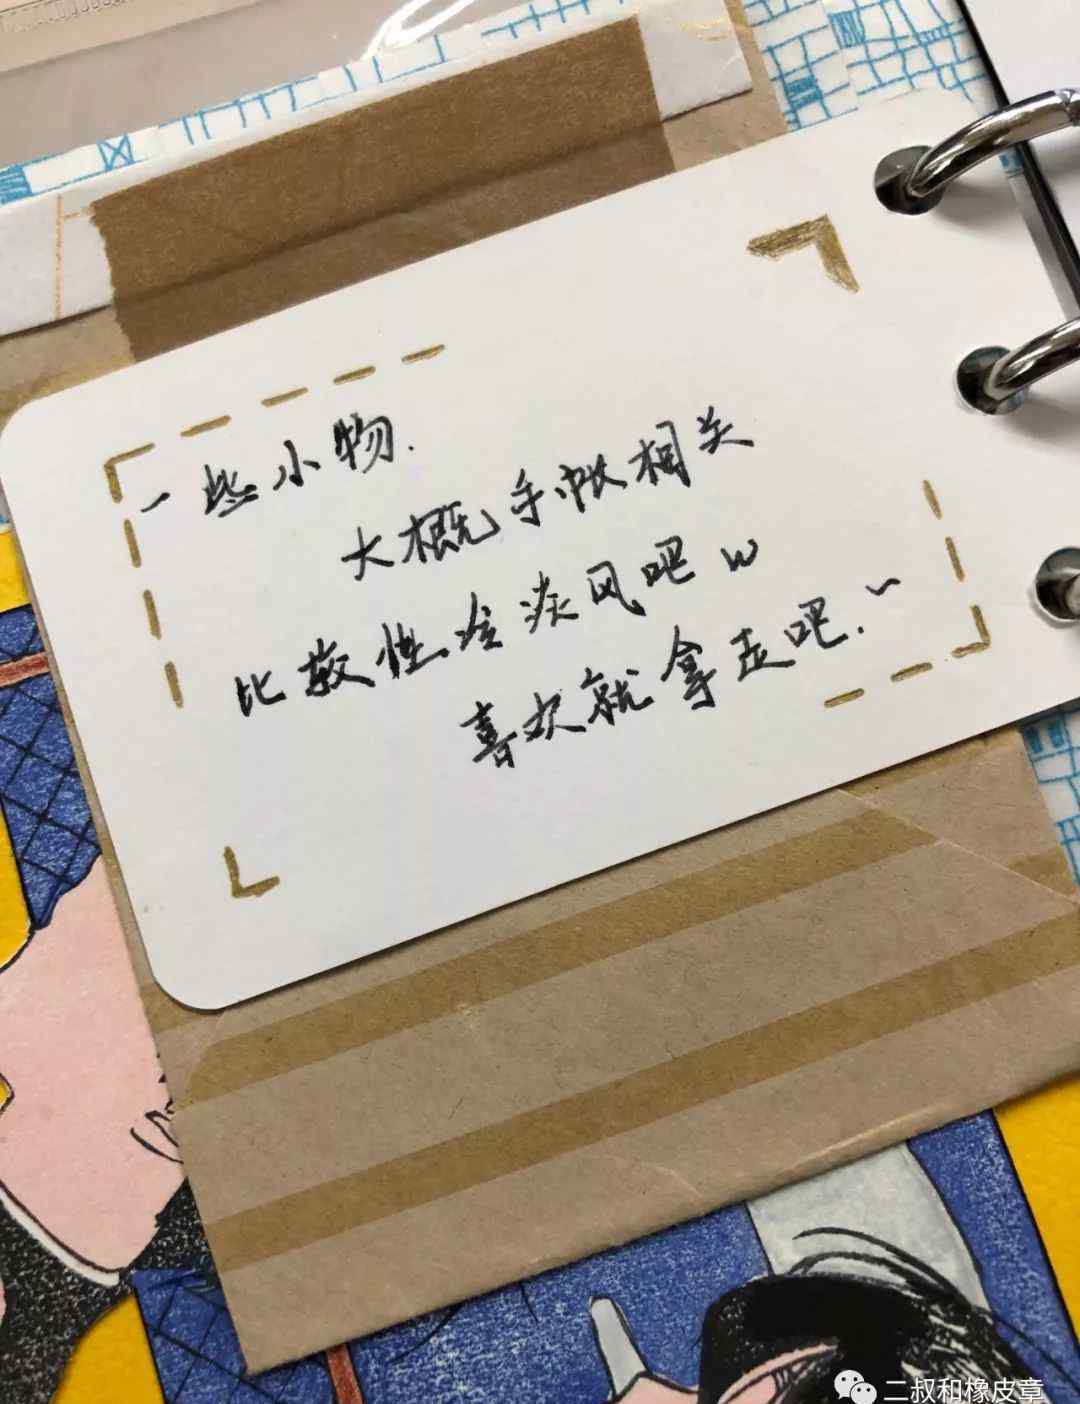 一些小物.
大概手帐相关
比较性冷淡风吧 w
喜欢就拿走吧.~
二叔和橡皮章